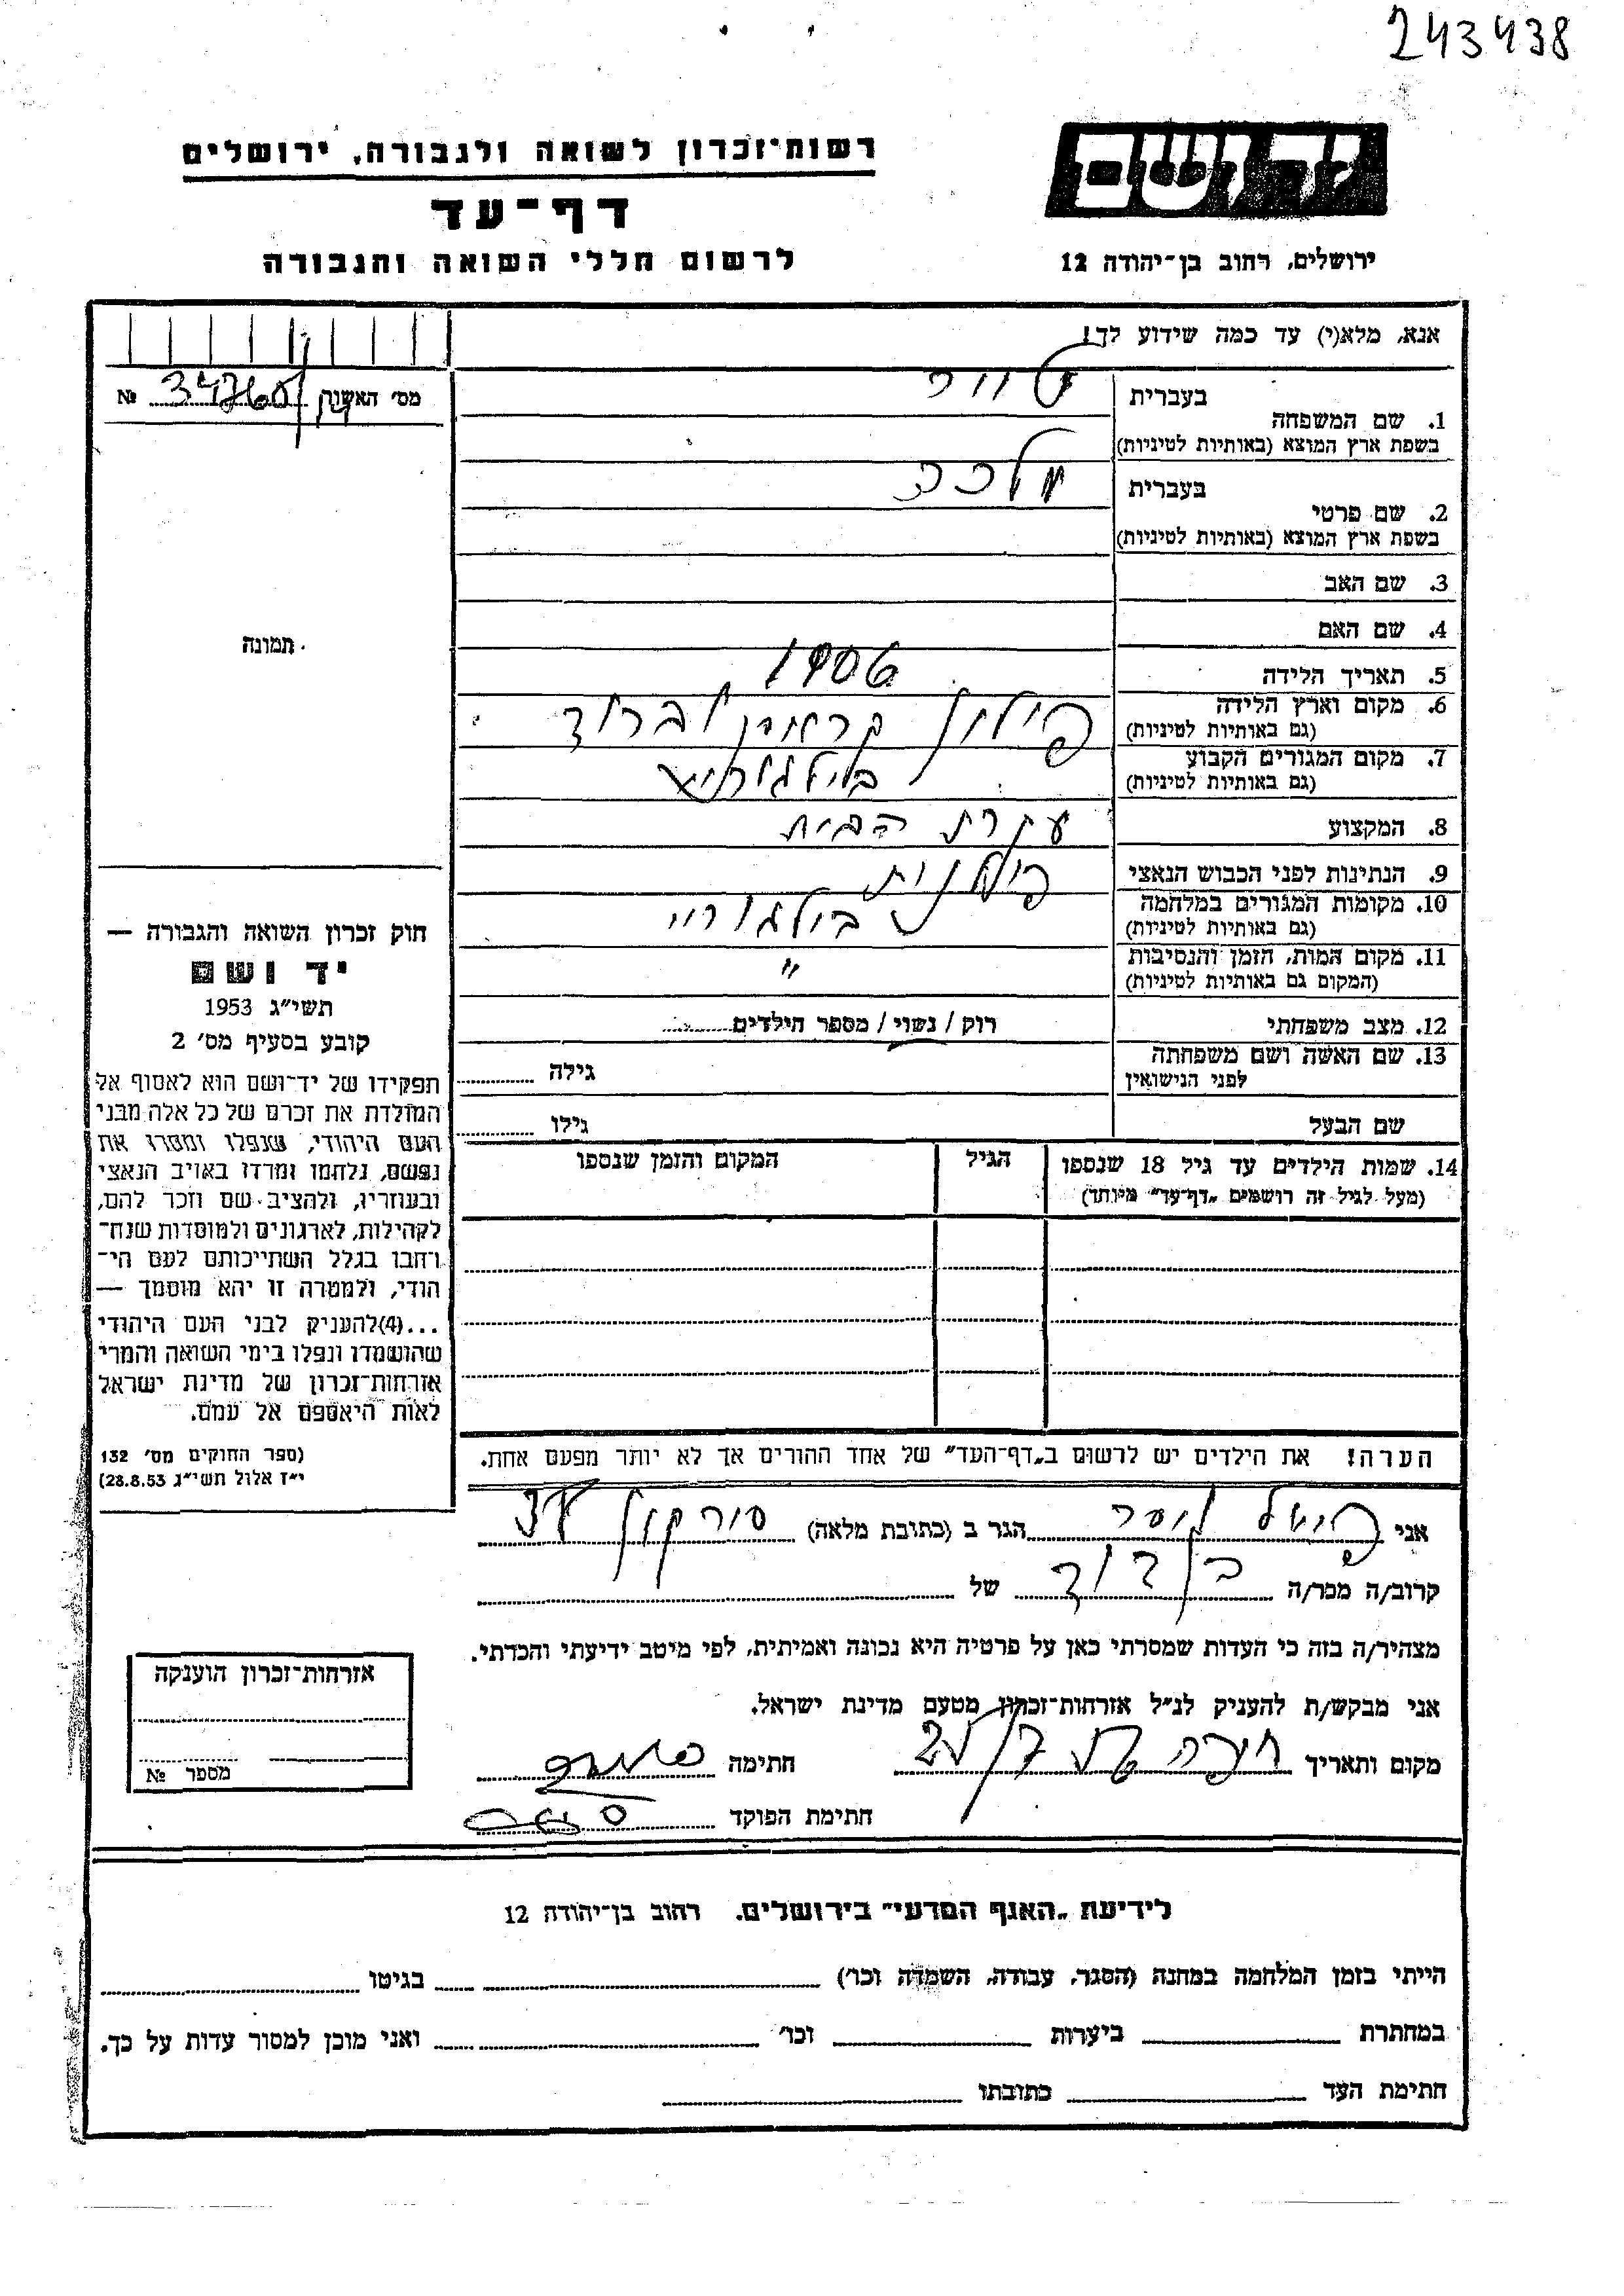 243438
יד ושם
רשות־זכרון לשואה ולגבורה, ירושלים
דף־עד
לרשום חללי השואה והגבורה
ירושלים, רחוב בן־יהודה 12
אנא, מלא(י) עד כמה שידוע לך!
מס׳ האשה № 34760
1. שם המשפחה
בעברית
בשפת ארץ המוצא (באותיות לטיניות)
2. שם פרטי
בעברית מלכה
בשפת ארץ המוצא (באותיות לטיניות)
3. שם האב
4. שם האם
5. תאריך הלידה 1906
6. מקום וארץ הלידה פולין
(גם באותיות לטיניות)
7. מקום המגורים הקבוע בילגוריי
(גם באותיות לטיניות)
8. המקצוע עקרת הבית
9. הנתינות לפני הכבוש הנאצי פולנית
10. מקומות המגורים במלחמה בילגוריי
(גם באותיות לטיניות)
11. מקום המות, הזמן והנסיבות "
(המקום גם באותיות לטיניות)
12. מצב משפחתי רוק / נשוי / מספר הילדים
13. שם האשה ושם משפחתה
לפני הנישואין
גילה
שם הבעל גילו
14. שמות הילדים עד גיל 18 שנספו
(מעל לגיל זה רושמים „דף־עד” מיוחד)
הגיל
המקום והזמן שנספו
הערה! את הילדים יש לרשום ב„דף־העד” של אחד ההורים אך לא יותר מפעם אחת.
תמונה
חוק זכרון השואה והגבורה —
יד ושם
תשי״ג 1953
קובע בסעיף מס׳ 2
תפקידו של יד־ושם הוא לאסוף אל
המולדת את זכרם של כל אלה מבני
העם היהודי, שנפלו ומסרו את
נפשם, נלחמו ומרדו באויב הנאצי
ובעוזריו, ולהציב שם וזכר להם,
לקהילות, לארגונים ולמוסדות שנח־
רחבו בגלל השתייכותם לעם הי־
הודי, ולמטרה זו יהא מוסמך —
...(4)להעניק לבני העם היהודי
שהושמדו ונפלו בימי השואה והמרי
אזרחות־זכרון של מדינת ישראל
לאות היאספם אל עמם.
(ספר החוקים מס׳ 132
י״ז אלול תשי״ג 28.8.53)
אני הגר ב (כתובת מלאה) סורקין
קרוב/ה מכר/ה בן דוד של
מצהיר/ה בזה כי העדות שמסרתי כאן על פרטיה היא נכונה ואמיתית, לפי מיטב ידיעתי והכרתי.
אני מבקש/ת להעניק לנ״ל אזרחות־זכרון מטעם מדינת ישראל.
מקום ותאריך חיפה חתימה
חתימת הפוקד
אזרחות־זכרון הוענקה
מספר №
לידיעת „האגף המדעי” בירושלים. רחוב בן־יהודה 12
הייתי בזמן המלחמה במחנה (הסגר, עבודה, השמדה וכו׳) בגיטו
במחתרת ביערות וכו׳ ואני מוכן למסור עדות על כך.
חתימת העד כתובתו